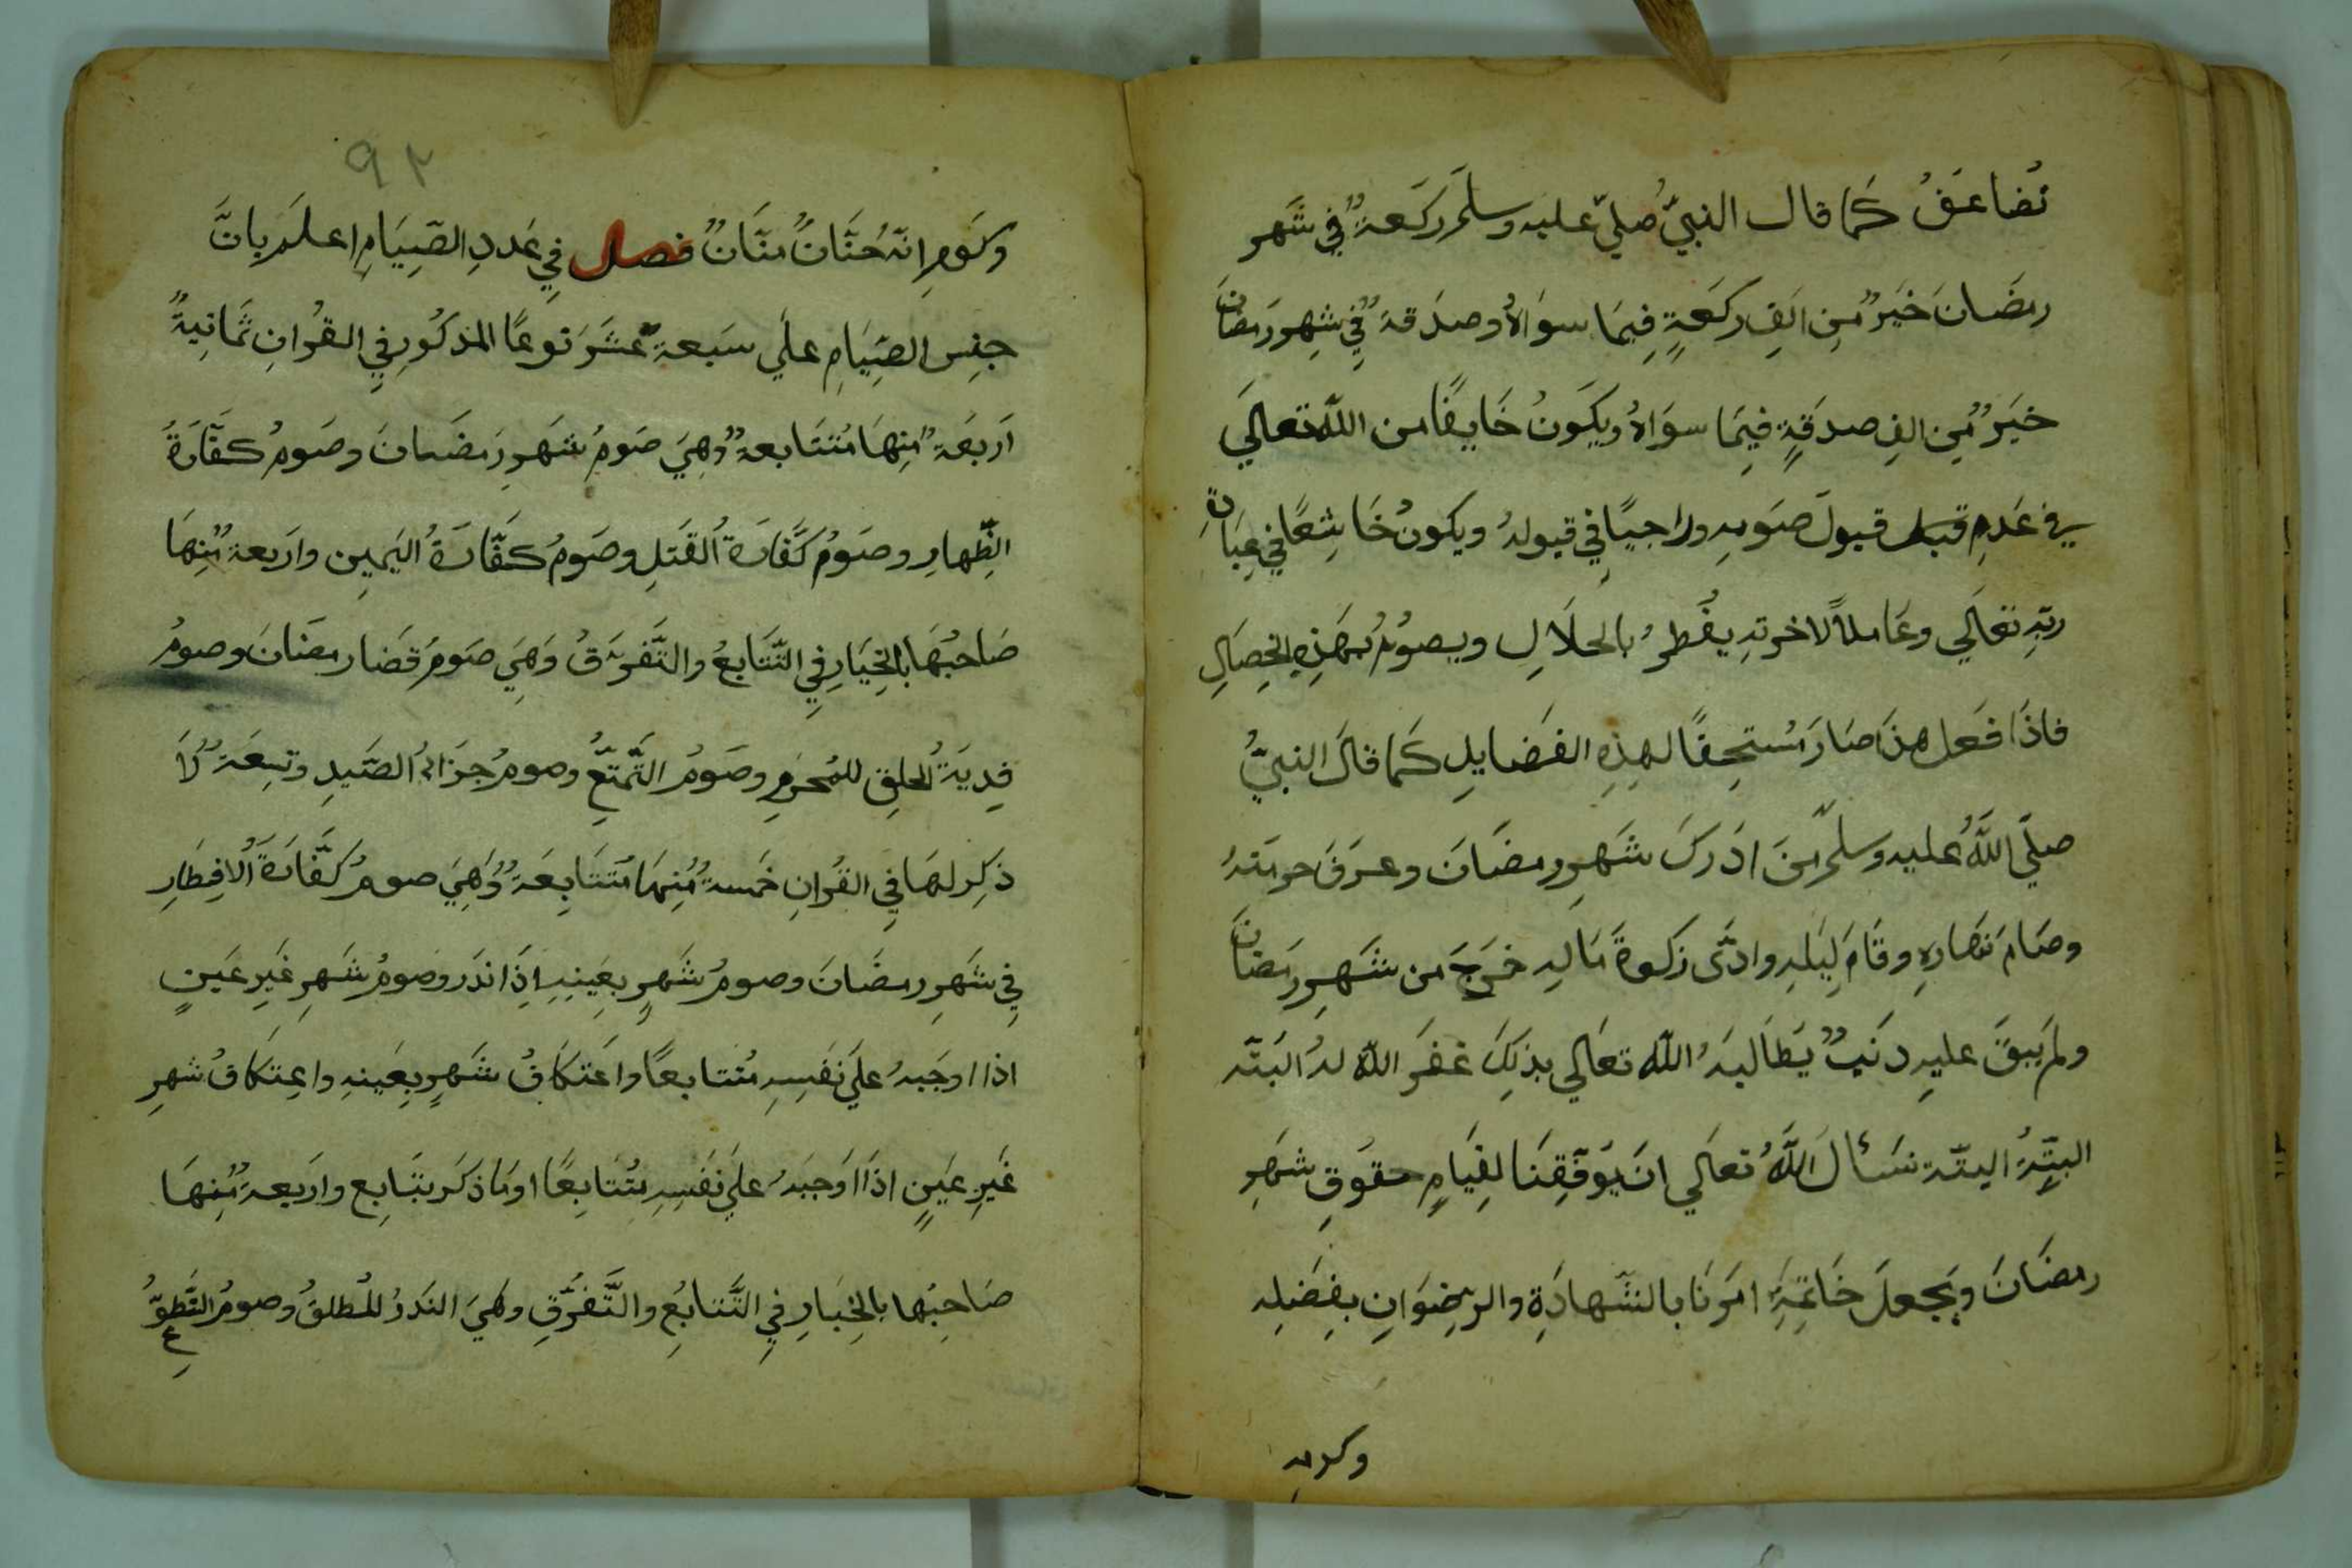 تُضاعَفُ كَما قال النبيُّ صليّ عليه وسلَّم ركَعةٌ في شَهر
رمضَانَ خَيرٌ مِن الَفِ ركعَةٍ فِيمَا سوَاهُ وصدَقةٌ فِي شهِر رَمضَانَ
خيَرٌ مِن الفِ صدقَةٍ فيِمَا سوَاهُ ويكَونُ خَايفًا من اللّٰه تعالَي
في عَدمِ قبل قبولَ صَومهِ وراجيًا في قبولهُ ويكونُ خَاشِعًا في عِبَادةِ
ربّهِ تعَالَي وعَاملاً لاخرتهِ يفُطرُ بالحلَالِ ويصوُمُ بهَذِهِ الخِصَالِ
فاذَا فَعَل هذَا صَارَ مُستحِقًا لهذِهِ الفَضايلِ كَما قالَ النبيُّ
صلَي اللّٰهُ عليه وسلمّ مَن ادَركَ شَهرِ رمضَانَ وعرَفَ حرمَتهُ
وصَامَ نَهَارهِ وقَامَ ليَلهِ وادَّى زكَوةَ مَالهِ خَرجَ من شَهرِ رَمضَانَ
ولَم يَبقَ عليهِ ذنَبٌ يَطَالبهُ اللّٰه تعَالي بذلكَ غفَر اللّٰه لهُ البتَه
البتّةُ البتّة نسَأل اللّٰهَُ تعَالَي انَ يوَفّقِنَا لقيَامِ حقوُقِ شَهرِ
رمضَانَ ويجعلَ خَاتمِةَ امَرنَا بالشّهادَةِ والرضِوَانِ بفِضَلِه
وكرمه
٩٢
وكَرمِ انّهُ حَنَّانٌ منّانٌ فصل في عَددِ الصّيَامِ اعلَم بانَّ
جنِس الصّيَامِ علَي سَبعةَ عَشَرَ نوعًا المذكُور فِي القُرانِ ثَمانيةٌ
اَربعَةٌ مِنهَا مُتتَابعةٌ وهِيَ صَومُ شَهرِ رَمضَانَ وصَومُ كفَّارَةَ
الظِّهارِ وصَومُ كَفّارَةَُ القَتلِ وصَومُ كفّارَةُ اليَمِين وارَبعةٌ مِنهَا
صَاحبُهَا بالخِيَارِ فِي التّتَابعُ والتَّفرّقُ وَهيَ صَومُ قضَا رمضَانَ وصومُ
فِديَةُ الحلقِ للمُحرمِ وصَومُ التَّمتّعُ وصومُ جزَاءُ الصّيدِ وتِسعَةٌ لاَ
ذكِر لهَا في القُرانِ خَمسةٌ مِنهَا مُتتَابِعَةٌ وَهيَ صومُ كفّارَةَ الُافِطَارِ
فِي شَهرِ رمضَانَ وصومُ شَهرٍ بعِينهِ اذَا نذَر وصومُ شَهرِ غَيرِ عَينٍ
اذا اوجَبهُ علَي نَفسِهِ مُتتابعًا واعَتكَافُ شَهرٍ بعَينهِ واعِتكَافُ شهرِ
غَيرِ عَينٍ اذَا اوَجبَهُ علَي نَفسِهِ مُتتَابِعًا اومَا ذكَر بتَابِع وارَبعةٌ مِنهَا
صَاحِبُها بالخِيَارِ فيِ التَّتابُعِ والتَّفرُّقِ وهَيَ النَذرُ المُطلقُ وصومُ التَّطوُّعِ